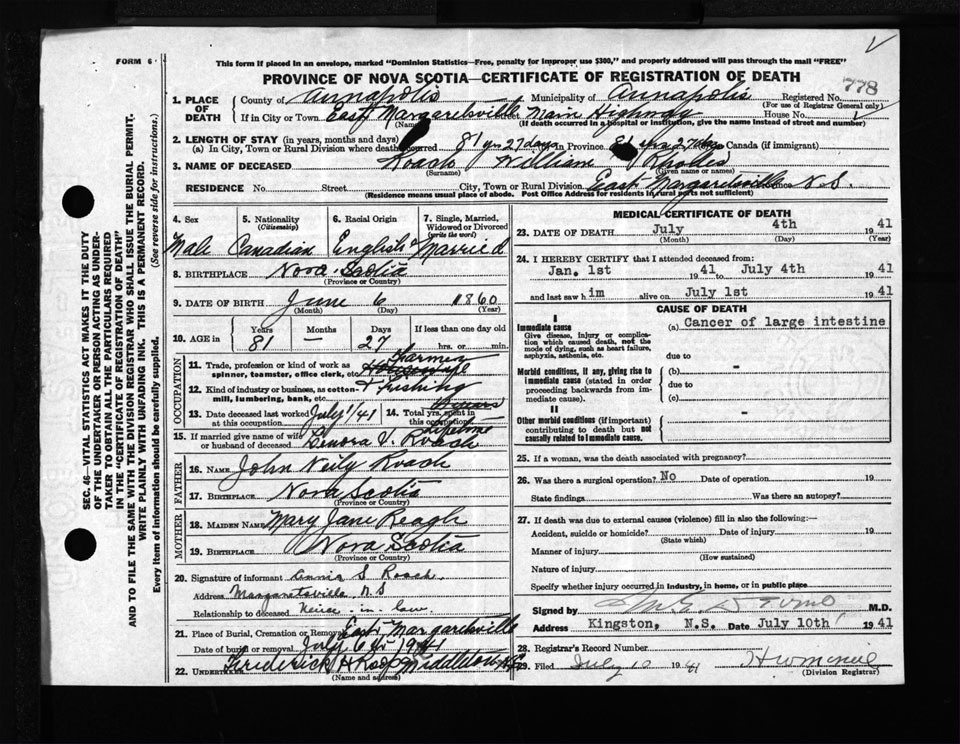 FORM 6
This form if placed in an envelope, marked "Dominion Statistics—Free, penalty for improper use $300," and properly addressed will pass through the mail "FREE"
PROVINCE OF NOVA SCOTIA—CERTIFICATE OF REGISTRATION OF DEATH
778
1. PLACE OF DEATH
County of Annapolis Municipality of Annapolis Registered No.
(For use of Registrar General only)
If in City or Town East Margaretsville Street Main Highway House No.
(Name) (If death occurred in a hospital or institution, give the name instead of street and number)
2. LENGTH OF STAY (in years, months and days)
(a) In City, Town or Rural Division where death occurred 81 yrs 27 days In Province 81 yrs 27 days Canada (if immigrant)
3. NAME OF DECEASED Roach William Rhodes
(Surname) (Given name or names)
RESIDENCE No. Street City, Town or Rural Division East Margaretsville N.S.
(Residence means usual place of abode. Post Office Address for residents in rural parts not sufficient)
4. Sex 5. Nationality (Citizenship) 6. Racial Origin 7. Single, Married, Widowed or Divorced (write the word)
Male Canadian English Married
8. BIRTHPLACE Nova Scotia
(Province or Country)
9. DATE OF BIRTH June 6 1860
(Month) (Day) (Year)
10. AGE in Years Months Days If less than one day old
81 — 27 hrs. or min.
OCCUPATION
11. Trade, profession or kind of work as spinner, teamster, office clerk, etc. Farmer
12. Kind of industry or business, as cotton-mill, lumbering, bank, etc. & Fishing
13. Date deceased last worked at this occupation July 1/41
14. Total yrs. spent in this occupation Lifetime
15. If married give name of wife or husband of deceased Lenora V. Roach
FATHER
16. NAME John Neily Roach
17. BIRTHPLACE Nova Scotia
(Province or Country)
MOTHER
18. MAIDEN NAME Mary Jane Reagh
19. BIRTHPLACE Nova Scotia
(Province or Country)
20. Signature of informant Annie S Roach
Address Margaretsville N.S
Relationship to deceased Neice-in-law
21. Place of Burial, Cremation or Removal East Margaretsville
Date of burial or removal July 6th 1941
22. UNDERTAKER Frederick H Roop Middleton N.S.
(Name and address)
MEDICAL CERTIFICATE OF DEATH
23. DATE OF DEATH July 4th 1941
(Month) (Day) (Year)
24. I HEREBY CERTIFY that I attended deceased from:
Jan. 1st 1941 to July 4th 1941
and last saw him alive on July 1st 1941
CAUSE OF DEATH
I
Immediate cause (a) Cancer of large intestine
Give disease, injury or complication which caused death, not the mode of dying, such as heart failure, asphyxia, asthenia, etc.
due to
Morbid conditions, if any, giving rise to immediate cause (stated in order proceeding backwards from immediate cause).
(b) -
due to
(c)
II
Other morbid conditions (if important) contributing to death but not causally related to immediate cause.
-
25. If a woman, was the death associated with pregnancy?
26. Was there a surgical operation? No Date of operation 19
State findings Was there an autopsy?
27. If death was due to external causes (violence) fill in also the following:—
Accident, suicide or homicide? Date of injury 19
(State which)
Manner of injury
(How sustained)
Nature of injury
Specify whether injury occurred in industry, in home, or in public place
Signed by M.D.
Address Kingston, N.S. Date July 10th 1941
28. Registrar's Record Number
29. Filed July 10 1941
(Division Registrar)
SEC. 46—VITAL STATISTICS ACT MAKES IT THE DUTY OF THE UNDERTAKER OR PERSON ACTING AS UNDERTAKER TO OBTAIN ALL THE PARTICULARS REQUIRED IN THE "CERTIFICATE OF REGISTRATION OF DEATH"
AND TO FILE THE SAME WITH THE DIVISION REGISTRAR WHO SHALL ISSUE THE BURIAL PERMIT.
WRITE PLAINLY WITH UNFADING INK. THIS IS A PERMANENT RECORD.
Every item of information should be carefully supplied. (See reverse side for instructions.)